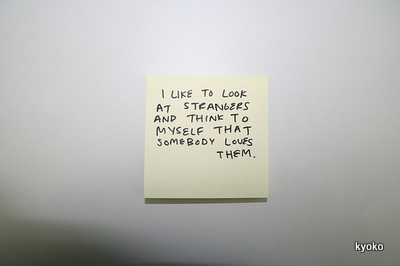 I LIKE TO LOOK
AT STRANGERS
AND THINK TO
MYSELF THAT
SOMEBODY LOVES
THEM.
kyoko